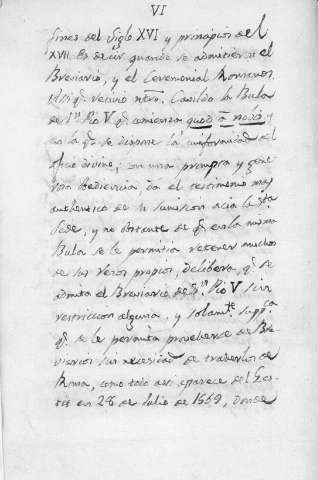 VI
fines del Siglo XVI y principios del
XVII. Es decir quando se admitieron el
Breviario, y el Ceremonial Romanos.
Assi q.e recivio ntro. Cavildo la Bula
de S.n Pio V q.e comienza quod a nobis y
en la q.e se dispone la uniformidad del
oficio divino; con una prompta y gene
rosa obediencia da el testimonio mas
authentico de su sumision acia la S.ta
Sede, y no obstante de q.e en la misma
Bula se le permitia retener muchos
de sus rezos propios, delibera, q.e se
admita el Breviario de S.n Pio V sin
restriccion alguna, y solam.te sup.ca
q.e se le permita proveherse de Bre
viarios sin necesidad de traherlos de
Roma, como todo assi aparece del Ges-
tis en 28 de Julio de 1569, donde